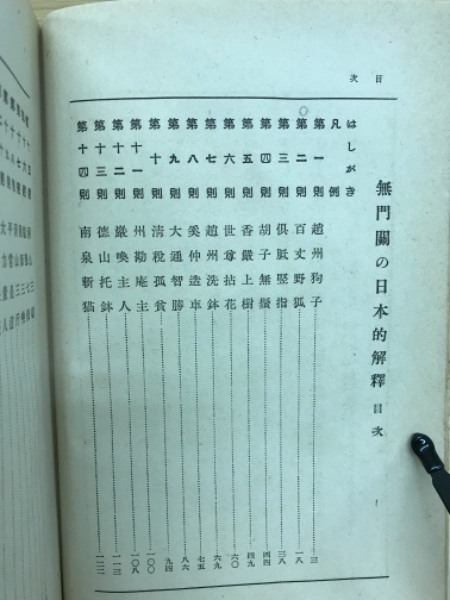 目次
無門關の日本的解釋 目次
はしがき
凡例
第一則 趙州狗子 三
第二則 百丈野狐 一八
第三則 俱胝竪指 三八
第四則 胡子無鬚 四四
第五則 香嚴上樹 四九
第六則 世尊拈花 六〇
第七則 趙州洗鉢 六九
第八則 奚仲造車 七五
第九則 大通智勝 八六
第十則 淸稅孤貧 九四
第十一則 州勘庵主 一〇〇
第十二則 巖喚主人 一〇八
第十三則 德山托鉢 一一三
第十四則 南泉斬猫 一二二